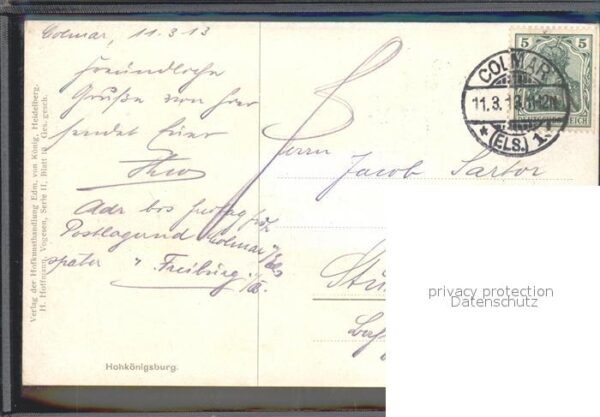 Colmar, 11.3.13
Freundliche
Grüße von hier
sendet Euer
Theo
Adr bis
Postlagernd Colmar i/Els
später " Freiburg i/B.
Herrn Jacob Sartor
Stu
5 5
COLMAR
11.3.13.
* (ELS.) 1.
Verlag der Hofkunsthandlung Edm. von König, Heidelberg.
H. Hoffmann, Vogesen, Serie II, Blatt 10 Ges. gesch.
Hohkönigsburg.
privacy protection
Datenschutz